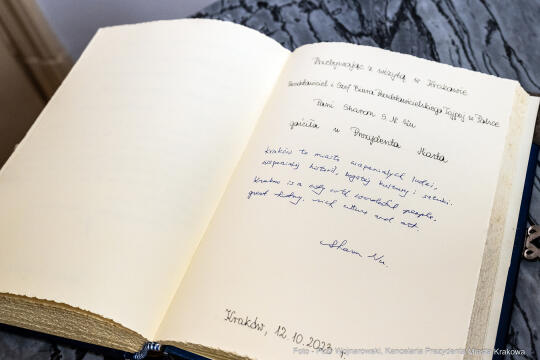 Przebywając z wizytą w Krakowie
Przedstawiciel i Szef Biura Przedstawicielskiego Tajpej w Polsce
Pani Sharon S.N. Wu
gościła u Prezydenta Miasta
Kraków to miasto wspaniałych ludzi,
wspaniałej historii, bogatej kultury i sztuki.
Kraków is a city with wonderful people,
great history, rich culture and art.
Sharon Wu.
Kraków, 12.10.2023 r.
Foto - Piotr Wojnarowski, Kancelaria Prezydenta Miasta Krakowa